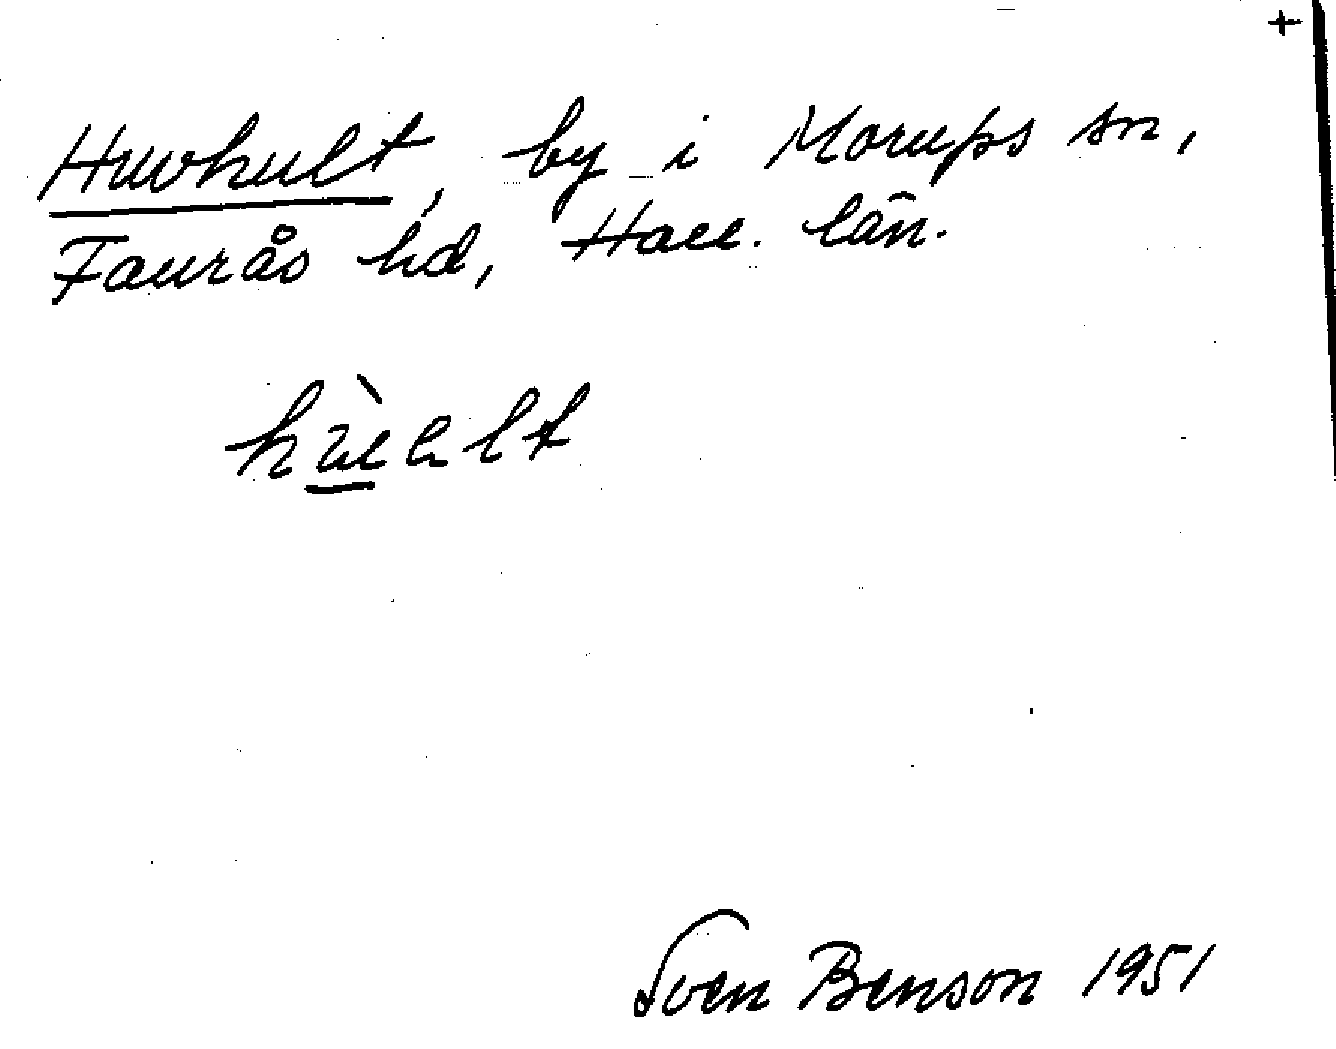 +
Huvhult, by i Morups sn,
Faurås hd, Hall. län.
Sven Benson 1951